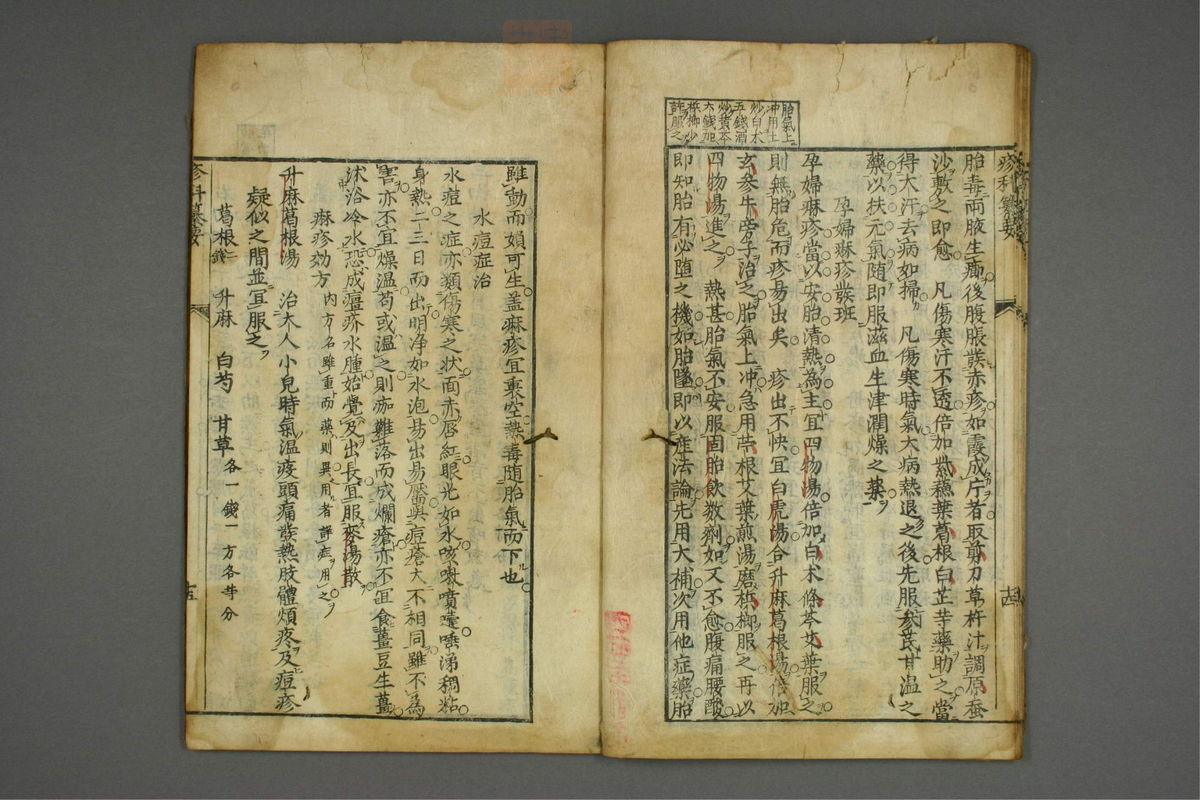 疹科纂要
胎毒兩腋生癰後腹脹發赤疹如霞成片者取剪刀草杵汁調原蚕
沙敷之即愈　凡傷寒汗不透倍加紫蘇葉葛根白芷等藥助之當
得大汗去病如掃　凡傷寒時氣大病熱退之後先服參芪甘温之
藥以扶元氣随即服滋血生津潤燥之藥
孕婦麻疹發班
孕婦麻疹當以安胎清熱為主宜四物湯倍加白术條芩艾葉服之
則無胎危而疹易出矣　疹出不快宜白虎湯合升麻葛根湯倍加
玄参牛旁子治之胎氣上冲急用苧根艾葉煎湯磨梹榔服之再以
四物湯進之　熱甚胎氣不安服固胎飲数劑如又不愈腹痛腰酸
即知胎有必墮之機如胎墜即以産法論先用大補次用他症藥胎
十四
胎氣上
冲用土
炒白术
五錢酒
炒黄芩
六錢加
梹榔少
許服之
雖動而頗可生盖麻疹宜裏空熱毒随胎氣而下也
水痘症治
水痘之症亦類傷寒之状面赤唇紅眼光如水咳嗽噴嚏唾涕稠粘
身熱二三日而出明净如水泡易出易靨與痘瘡大不相同雖不為
害亦不宜燥温苟或温之則痂難落而成爛瘡亦不宜食薑豆生薑
沐浴冷水恐成瘟疥水腫始覺及出長宜服麥湯散
麻疹効方　内方名雖重而藥則異用者詳症用之
升麻葛根湯　治大人小兒時氣温疫頭痛發熱肢體煩疼及痘疹
疑似之間並宜服之
葛根二錢　升麻　白芍　甘草各一錢一方各等分
疹科纂要
十五